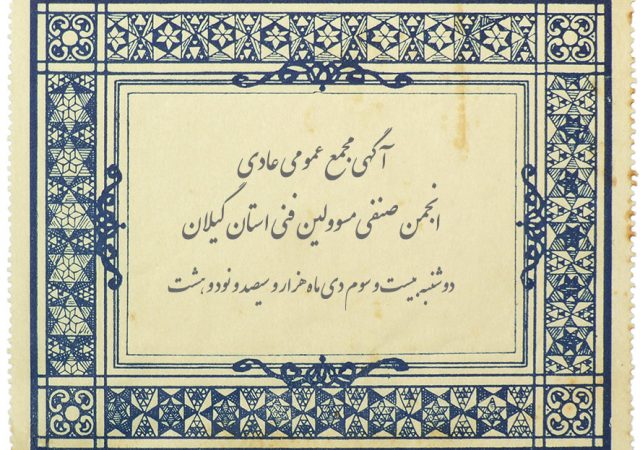 آگهی مجمع عمومی عادی
انجمن صنفی مسوولین فنی استان گیلان
دوشنبه بیست و سوم دی ماه هزار و سیصد و نود و هشت